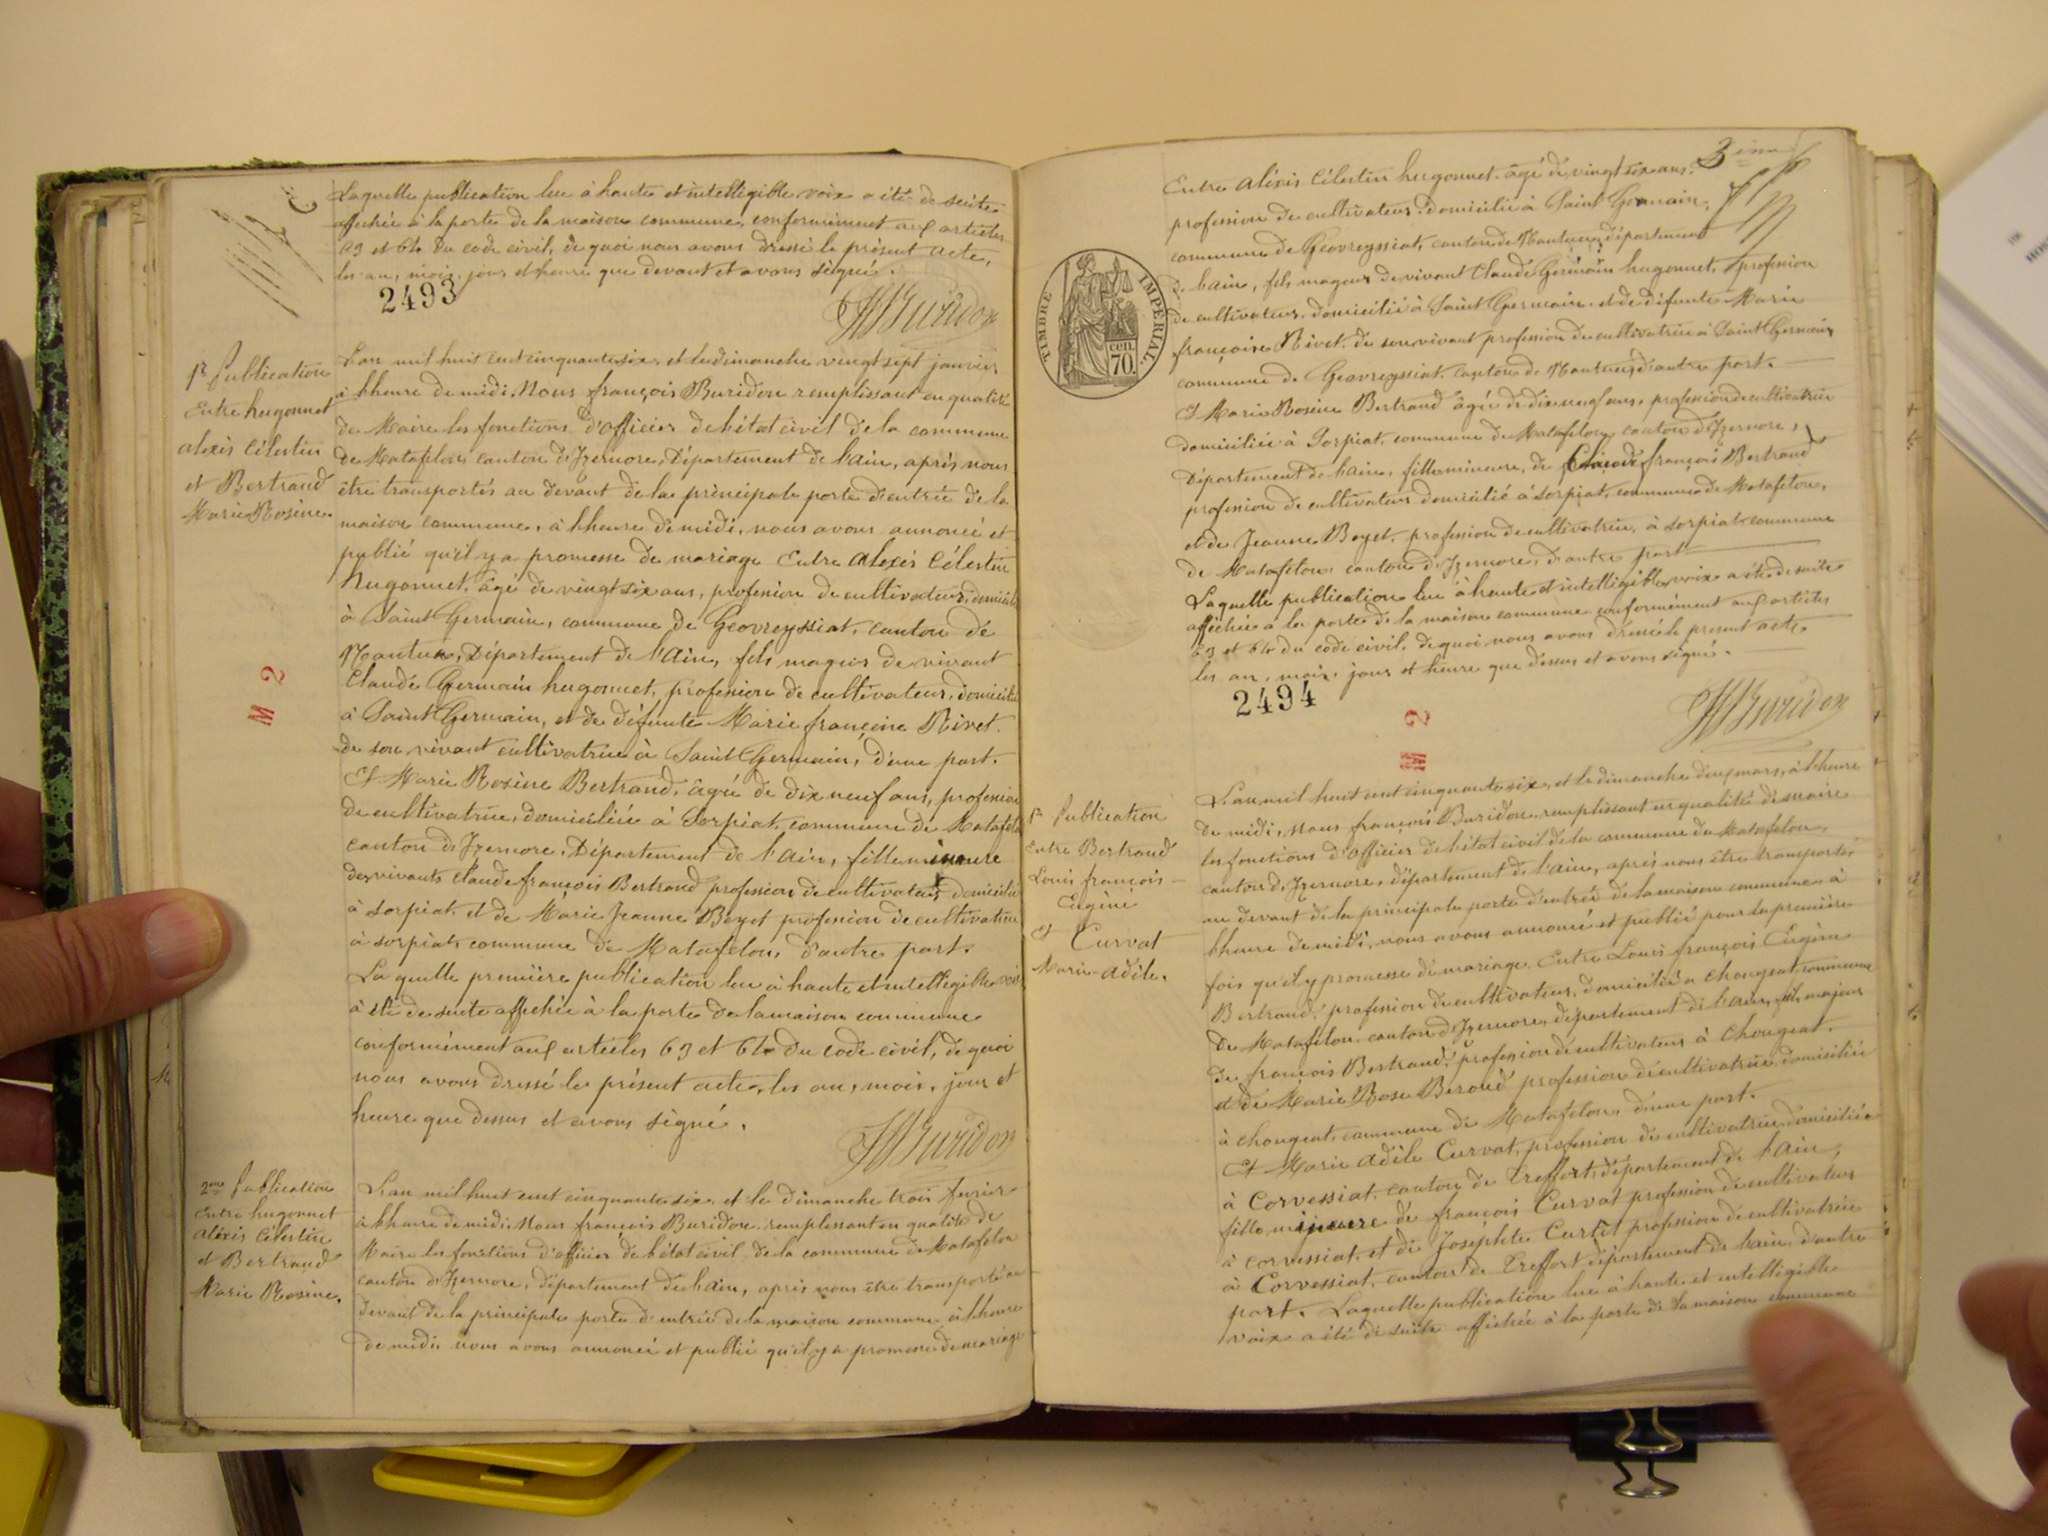 Laquelle publication lue à haute et intelligible voix a été de suite
affichée à la porte de la maison commune, conformément aux articles
63 et 64 du code civil, de quoi nous avons dressé le présent acte,
les an, mois, jour et heure que devant et avons signé.
2493
Buridon
1re Publication
Entre hugonnet
alexis Célestin
et Bertrand
Marie Rosine.
L'an mil huit cent cinquante six, et le dimanche vingt sept janvier
à l'heure de midi, Nous françois Buridon remplissant en qualité
de Maire les fonctions d'officier de l'état civil de la commune
de Matafelon canton d'Izernore, Département de l'ain, après nous
être transportés au devant de la principale porte d'entrée de la
maison commune, à l'heure de midi, nous avons annoncé et
publié qu'il y a promesse de mariage Entre Alexis Célestin
Hugonnet, âgé de vingt six ans, profession de cultivateur, domicilié
à Saint Germain, commune de Geovreyssiat, canton de
Nantua, Département de l'Ain, fils mageur de vivant
Claude Germain hugonnet, profession de cultivateur, domicilié
à Saint Germain, et de défunte Marie françoise Rivet.
de son vivant cultivatrice à Saint Germain, d'une part.
Et Marie Rosine Bertrand, âgée de dix neuf ans, profession
de cultivatrice, domiciliée à Sorpiat, commune de Matafelon
canton d'Izernore, Département de l'Ain, fille mineure
des vivants Claude françois Bertrand profession de cultivateur, domicilié
à sorpiat et de Marie Jeanne Beyet profession de cultivatrice
à sorpiat, commune de Matafelon, d'autre part.
Laquelle première publication lue à haute et intelligible voix
à été de suite affichée à la porte de la maison commune
conformément aux articles 63 et 64 du code civil, de quoi
nous avons dressé le présent acte, les an, mois, jour et
heure que dessus et avons signé.
Buridon
M 2
2me Publication
Entre hugonnet
alexis Célestin
et Bertrand
Marie Rosine.
L'an mil huit cent cinquante six, et le dimanche trois fevrier
à l'heure de midi, Nous françois Buridon remplissant en qualité de
Maire les fonctions d'officier de l'état civil de la commune de Matafelon
canton d'Izernore, département de l'ain, après nous être transporté au
devant de la principale porte d'entrée de la maison commune à l'heure
de midi, nous avons annoncé et publié qu'il y a promesse de mariage
3ième
Entre Alexis Célestin hugonnet âgé de vingt six ans,
profession de cultivateur, domicilié à Saint Germain,
commune de Geovreyssiat, canton de Nantua, département
de l'ain, fils mageur de vivant Claude Germain hugonnet, profession
de cultivateur, domicilié à Saint Germain et de défunte Marie
françoise Rivet de son vivant profession de cultivatrice à Saint Germain
commune de Geovreyssiat, canton de Nantua, d'autre part.
Et Marie Rosine Bertrand âgée de dix neuf ans, profession de cultivatrice
domiciliée à Sorpiat, commune de Matafelon, canton d'Izernore,
Département de l'ain, fille mineure, de Claude françois Bertrand
profession de cultivateur domicilié à sorpiat, commune de Matafelon,
et de Jeanne Beyet, profession de cultivatrice, à sorpiat commune
de Matafelon, canton d'Izernore, d'autre part
Laquelle publication lue à haute et intelligible voix a été de suite
affichée à la porte de la maison commune conformément aux articles
63 et 64 du code civil, de quoi nous avons dressé le présent acte
les an, mois, jours et heure que dessus et avons signé.
TIMBRE IMPÉRIAL
70 cen.
2494
M 2
Buridon
1re Publication
Entre Bertrand
Louis françois
Eugène
Et Curvat
Marie Adèle.
L'an mil huit cent cinquante six, et le dimanche deux mars, à l'heure
de midi, nous françois Buridon, remplissant en qualité de maire
les fonctions d'officier de l'état civil de la commune de Matafelon,
canton d'Izernore, département de l'ain, après nous être transportés
au devant de la principale porte d'entrée de la maison commune à
l'heure de midi, nous avons annoncé et publié pour la première
fois qu'il y promesse de mariage Entre Louis françois Eugène
Bertrand, profession de cultivateur, domicilié à chougeat, commune
de Matafelon, canton d'Izernore, département de l'ain, fils majeur
de françois Bertrand, profession de cultivateur à Chougeat.
et de Marie Rose Beroud profession de cultivatrice domiciliée
à chougeat, commune de Matafelon, d'une part.
Et Marie Adèle Curvat, profession de cultivatrice, domiciliée
à Corvessiat, canton de Treffort, département de l'ain,
fille mineure de françois Curvat profession de cultivateur
à corvessiat, et de Josephte Curtil profession de cultivatrice
à Corvessiat, canton de Treffort département de l'ain, d'autre
part. Laquelle publication lue à haute et intelligible
voix a été de suite affichée à la porte de la maison commune